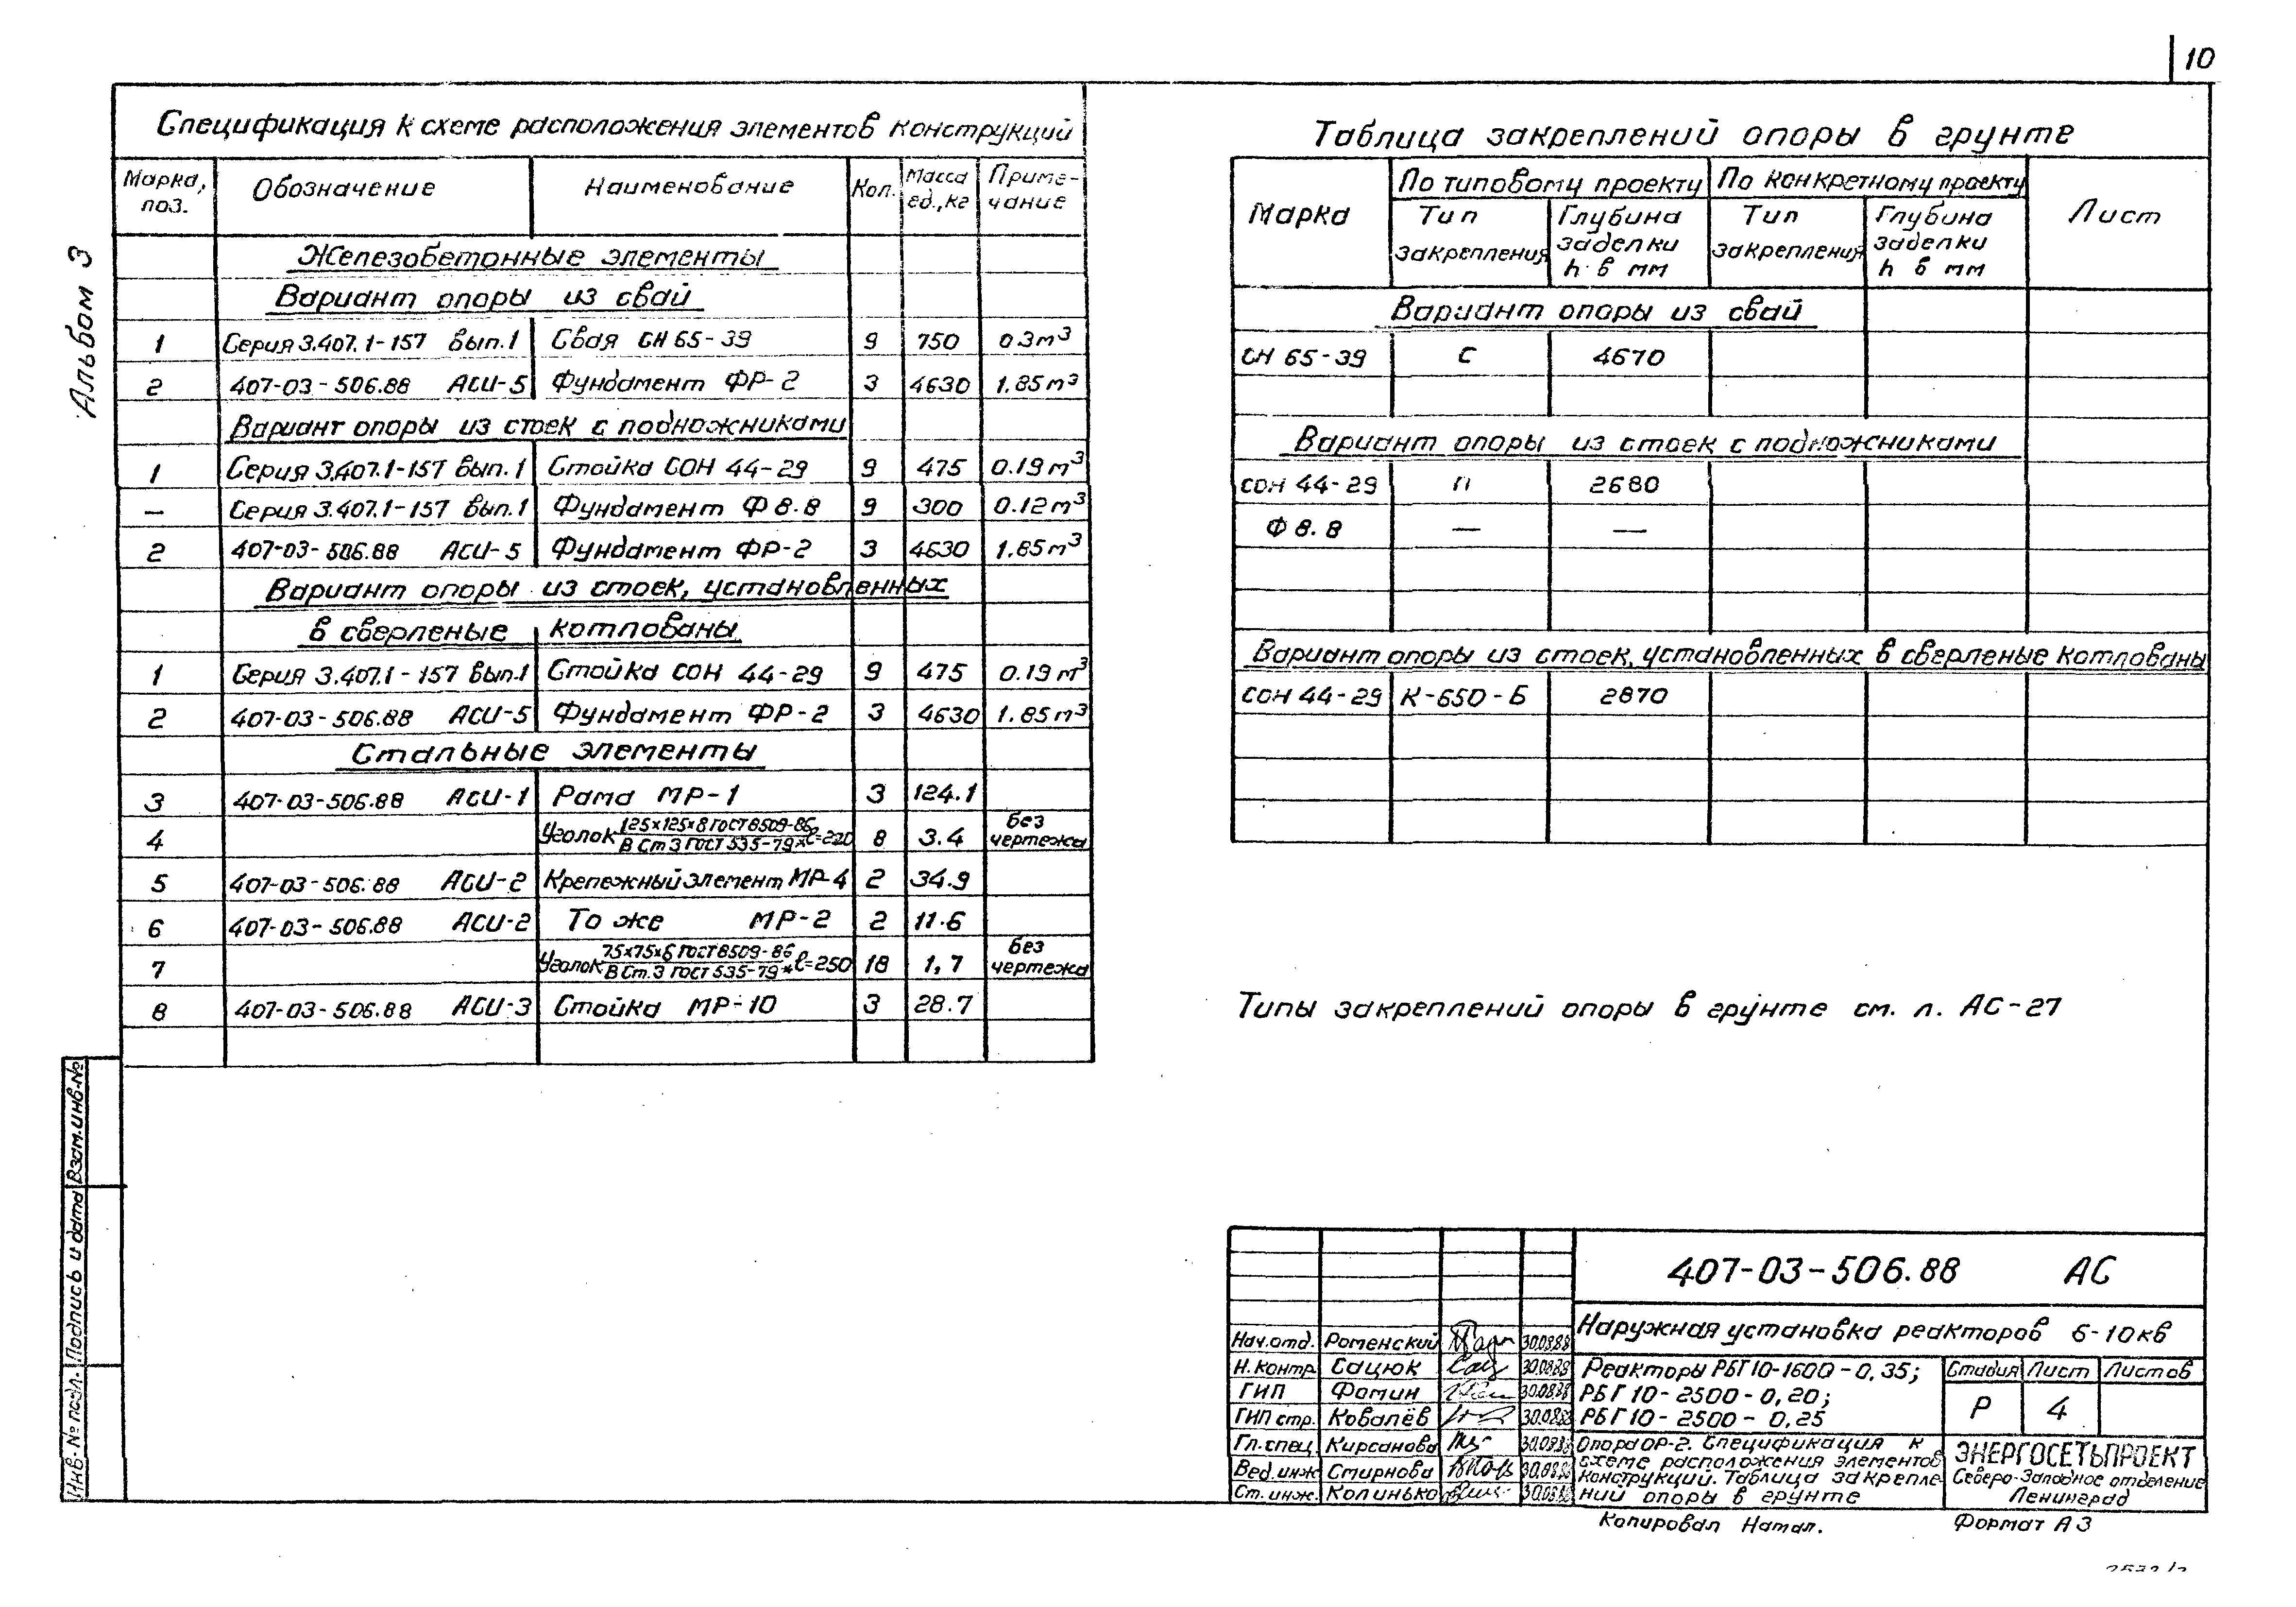 10
Альбом 3
Спецификация к схеме расположения элементов конструкций
Марка, поз. Обозначение Наименование Кол. Масса ед., кг Приме-чание
Железобетонные элементы
Вариант опоры из свай
1 Серия 3.407.1-157 вып.1 Свая СН 65-39 9 750 0.3м³
2 407-03-506.88 АСИ-5 Фундамент ФР-2 3 4630 1.85м³
Вариант опоры из стоек с подножниками
1 Серия 3.407.1-157 вып.1 Стойка СОН 44-29 9 475 0.19м³
— Серия 3.407.1-157 вып.1 Фундамент Ф 8.8 9 300 0.12м³
2 407-03-506.88 АСИ-5 Фундамент ФР-2 3 4630 1.85м³
Вариант опоры из стоек, установленных
в сверленые котлованы
1 Серия 3.407.1-157 вып.1 Стойка СОН 44-29 9 475 0.19м³
2 407-03-506.88 АСИ-5 Фундамент ФР-2 3 4630 1.85м³
Стальные элементы
3 407-03-506.88 АСИ-1 Рама МР-1 3 124.1
4 Уголок 125х125х8 ГОСТ 8509-86 / В Ст 3 ГОСТ 535-79* ℓ=220 8 3.4 без чертежа
5 407-03-506.88 АСИ-2 Крепежный элемент МР-4 2 34.9
6 407-03-506.88 АСИ-2 То же МР-2 2 11.6
7 Уголок 75х75х6 ГОСТ 8509-86 / В Ст. 3 ГОСТ 535-79* ℓ=250 18 1,7 без чертежа
8 407-03-506.88 АСИ-3 Стойка МР-10 3 28.7
Таблица закреплений опоры в грунте
Марка По типовому проекту По конкретному проекту Лист
Тип закрепления Глубина заделки h в мм Тип закрепления Глубина заделки h в мм
Вариант опоры из свай
СН 65-39 С 4670
Вариант опоры из стоек с подножниками
СОН 44-29 П 2680
Ф 8.8 — —
Вариант опоры из стоек, установленных в сверленые котлованы
СОН 44-29 К-650-Б 2870
Типы закреплений опоры в грунте см. л. АС-27
Инв. № подл. Подпись и дата Взам. инв. №
407-03-506.88 АС
Наружная установка реакторов 6-10кв
Нач. отд. Роменский 30.08.88
Н. контр. Сацюк 30.08.88
ГИП Фомин 30.08.88
ГИП стр. Ковалёв 30.08.88
Гл. спец. Кирсанова 30.08.88
Вед. инж. Смирнова 30.08.88
Ст. инж. Колинько 30.08.88
Реакторы РБГ 10-1600-0,35;
РБГ 10-2500-0,20;
РБГ 10-2500-0,25
Стадия Лист Листов
Р 4
Опора ОР-2. Спецификация к
схеме расположения элементов
конструкций. Таблица закрепле-
ний опоры в грунте
ЭНЕРГОСЕТЬПРОЕКТ
Северо-Западное отделение
Ленинград
Копировал Натал. Формат А3